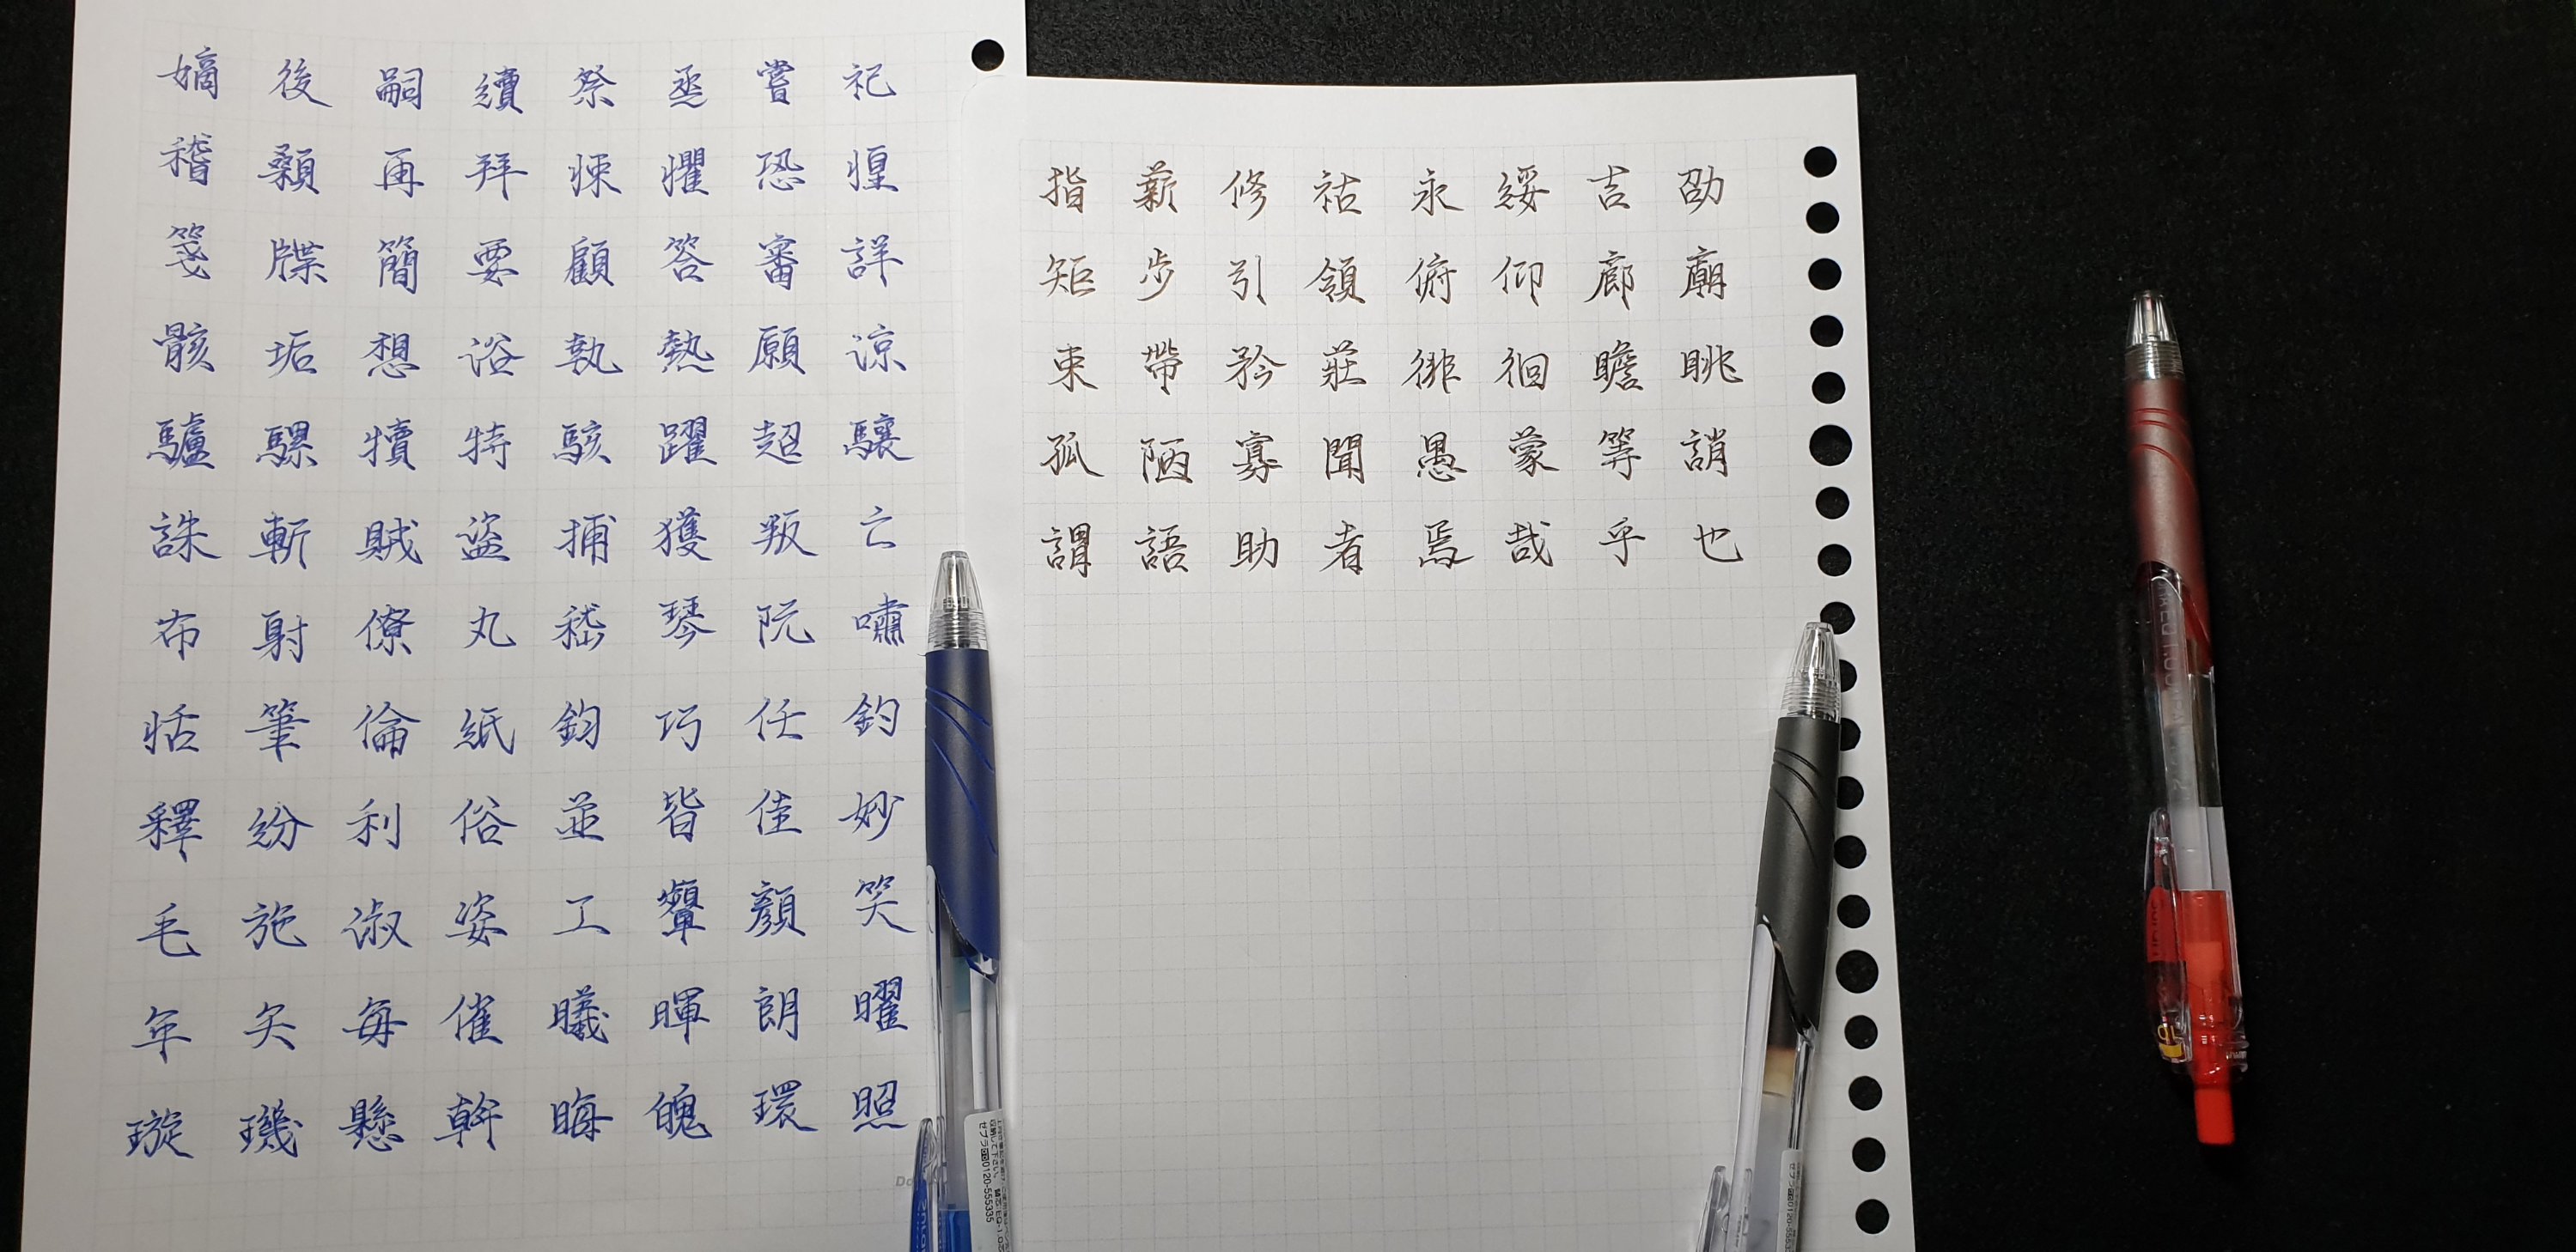 嫡後嗣續祭烝嘗祀
稽顙再拜悚懼恐惶
箋牒簡要顧答審詳
骸垢想浴執熱願涼
驢騾犢特駭躍超驤
誅斬賊盜捕獲叛亡
布射僚丸嵇琴阮嘯
恬筆倫紙鈞巧任釣
釋紛利俗並皆佳妙
毛施淑姿工顰顏笑
年矢每催曦暉朗曜
璇璣懸斡晦魄環照
指薪修祜永綏吉劭
矩步引領俯仰廊廟
束帶矜莊徘徊瞻眺
孤陋寡聞愚蒙等誚
謂語助者焉哉乎也
ゼブラ㈱0120-555335